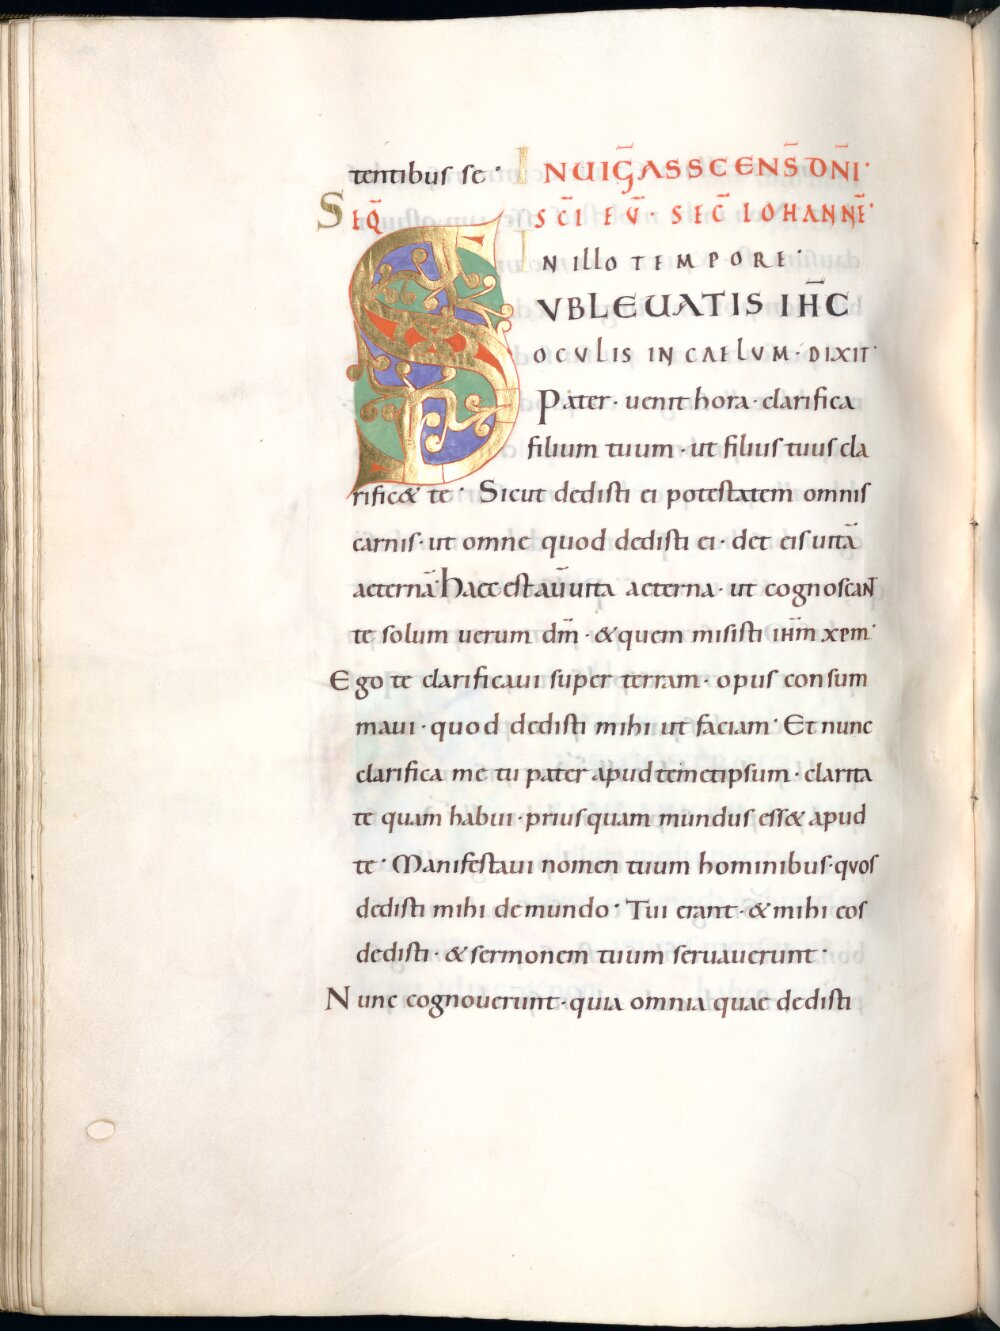 tentibus se · IN UIG̅ ASSCENS̅ DN̅I ·
SEQ̅ SC̅I EV̅ · SEC̅ IOHANNE̅ ·
IN illo TEMPORE ·
SVBLEUATIS IH̅C
OCVLIS IN CAELVM · DIXIT ·
Pater · uenit hora · clarifica
filium tuum · ut filius tuus cla
rific& te · Sicut dedisti ei potestatem omnis
carnis · ut omne quod dedisti ei · det eis uitā
aeternā · Haec est aū uita aeterna · ut cognoscaNT
te solum uerum dm̅ · & quem misisti ihm̅ xpm̅ ·
Ego te clarificaui super terram · opus consum
maui · quod dedisti mihi ut faciam · Et nunc
clarifica me tu pater apud temetipsum · clarita
te quam habui · prius quam mundus ess& apud
te · Manifestaui nomen tuum hominibus · quos
dedisti mihi de mundo · Tui erant · & mihi eos
dedisti · & sermonem tuum seruauerunt ·
Nunc cognouerunt · quia omnia quae dedisti